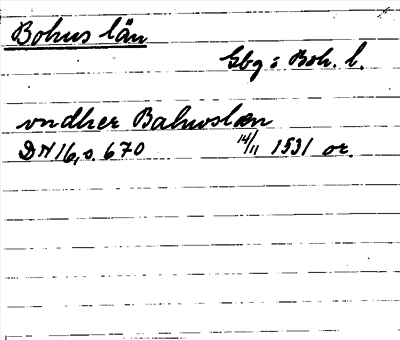 Bohus län
Gbg o Boh. l.
vndher Bahwslæn
DN 16, s. 670 14/11 1531 or.